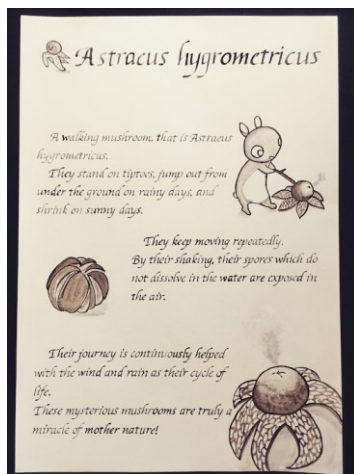 Astracus hygrometricus
A walking mushroom, that is Astracus
hygrometricus.
They stand on tiptoes, jump out from
under the ground on rainy days, and
shrink on sunny days.
They keep moving repeatedly.
By their shaking, their spores which do
not dissolve in the water are exposed in
the air.
Their journey is continuously helped
with the wind and rain as their cycle of
life.
These mysterious mushrooms are truly a
miracle of mother nature!